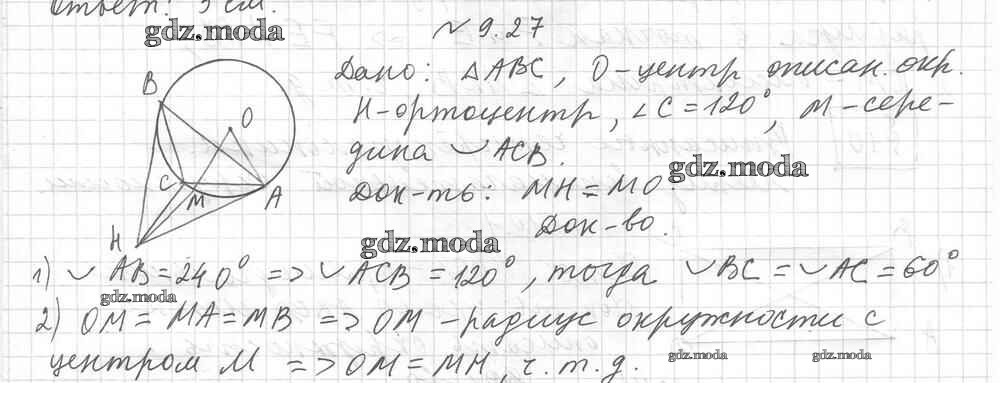 Ответ: 5 см.
gdz.moda
№ 9.27
Дано: △ABC, O-центр описан. окр.
H-ортоцентр, ∠C=120°, M-сере-
дина ◡ACB.
gdz.moda
Док-ть: MH=MO.
Док-во.
gdz.moda
B
O
C
M
A
H
1) ◡AB=240° => ◡ACB=120°, тогда ◡BC=◡AC=60°
gdz.moda
2) OM=MA=MB => OM-радиус окружности с
gdz.moda
gdz.moda
центром M => OM=MH, ч.т.д.